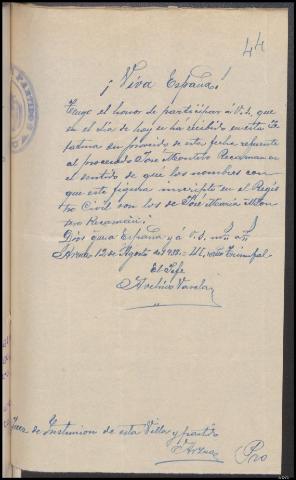 44
¡Viva España!
Tengo el honor de participar á V.S. que
en el dia de hoy se há recibido en esta Je
fatura su proveido de esta fecha referente
al procesado José Montero Recaman en
el sentido de que los nombres con
que este figura inscripto en el Regis
tro Civil son los de José Maria Mon
tero Recaman.
Dios que a España y á V.S. ms. as.
Arzua 12 de Agosto de 1938.= III, Año Triunfal.-
El Jefe
Avelino Varela
Juez de Instrucion de esta Villa y partido
Arzua
PARTIDO